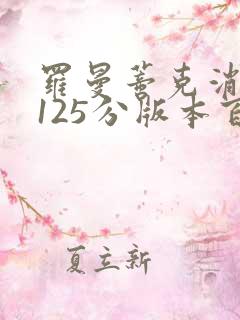 羅曼蒂克消
125分版本百
夏立新